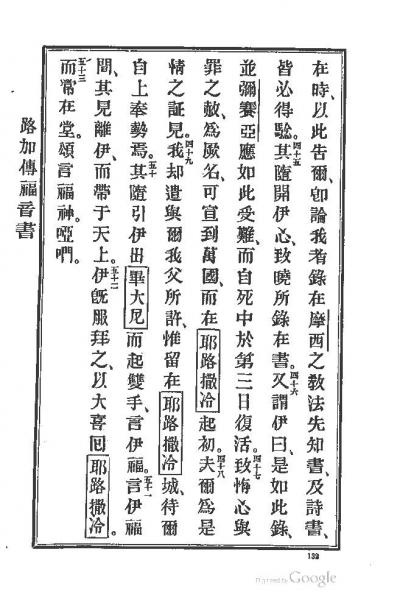 在時、以此告爾、卽論我者錄在摩西之敎法先知書、及詩書、
皆必得騐。四十五其隨開伊心、致曉所錄在書。四十六又謂伊曰、是如此錄、
並彌賽亞應如此受難、而自死中於第三日復活。四十七致悔心與
罪之赦、爲厥名可宣到萬國、而在耶路撒冷起初。四十八夫爾爲是
情之証見。四十九我却遣與爾我父所許、惟留在耶路撒冷城、待爾
自上奉勢焉。五十其隨引伊出畢大尼而起雙手、言伊福。五十一言伊福
間、其見離伊、而帶于天上。五十二伊旣服拜之、以大喜囘耶路撒冷。
五十三而常在堂。頌言福神。啞們。
路加傳福音書
132
Digitized by Google